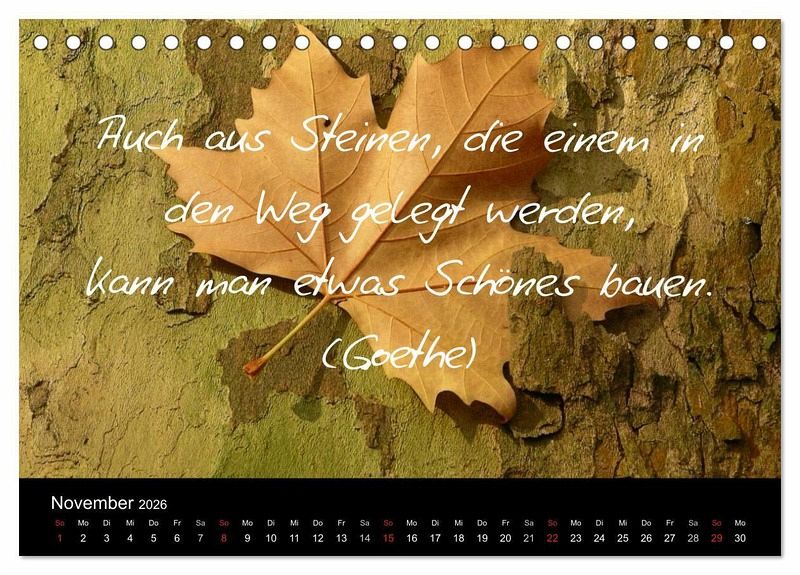 Auch aus Steinen, die einem in
den Weg gelegt werden,
kann man etwas Schönes bauen.
(Goethe)
November 2026
So Mo Di Mi Do Fr Sa So Mo Di Mi Do Fr Sa So Mo Di Mi Do Fr Sa So Mo Di Mi Do Fr Sa So Mo
1 2 3 4 5 6 7 8 9 10 11 12 13 14 15 16 17 18 19 20 21 22 23 24 25 26 27 28 29 30